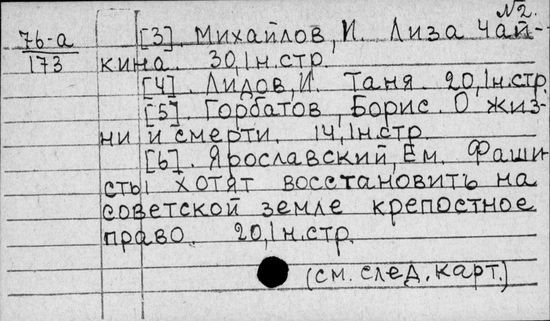 №2.
76-а [3]. Михайлов, И. Лиза Чай-
173 кина. 30,1н.стр.
[4]. Лидов, И. Таня. 20,1н.стр.
[5]. Горбатов, Борис. О жиз-
ни и смерти. 14,1н.стр.
[6]. Ярославский, Ем. Фаши-
сты хотят восстановить на
советской земле крепостное
право. 20,1н.стр.
(см. след. карт.)